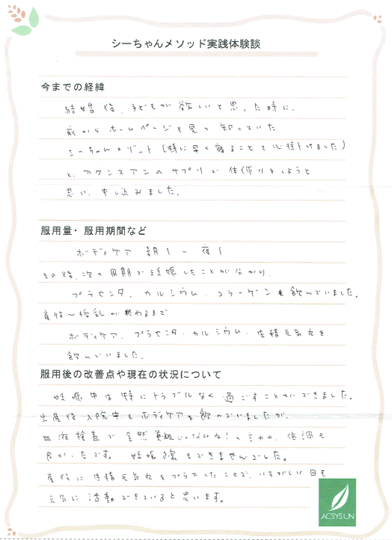 シーちゃんメソッド実践体験談
今までの経緯
結婚後、子どもが欲しいと思った時に、
前からホームページを見て知っていた
シーちゃんメソッド(特に早く寝ることを心掛けました)
と、アクシスアンのサプリで体作りをしようと
思い、申し込みました。
服用量・服用期間など
ボディケア 朝1 - 夜1
その後、次の周期で妊娠したことが分かり、
プラセンタ、カルシウム、コラーゲンも飲んでいました。
産後〜授乳が終わるまで
ボディケア、プラセンタ、カルシウム、生精元気を
飲んでいました。
服用後の改善点や現在の状況について
妊娠中は特にトラブルなく過ごすことができました。
出産後入院中もボディケアを飲んでいましたが、
血液検査で全然貧血じゃないね!と言われ、体調も
良かったです。妊娠線もできませんでした。
産後に生精元気をプラスしたことで、いそがしい日も
元気に活動できていると思います。
ACSYSUN